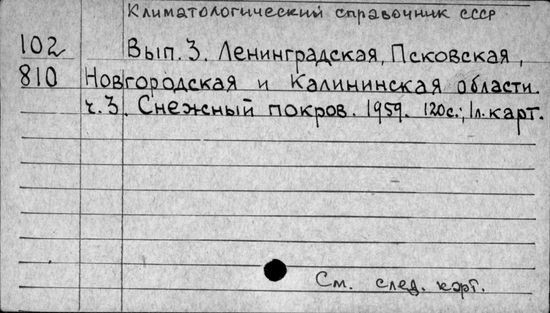 Климатологический справочник СССР
102 Вып. 3. Ленинградская, Псковская,
810 Новгородская и Калининская области.
ч. 3. Снежный покров. 1959. 120с.; 1л. карт.
См. след. карт.